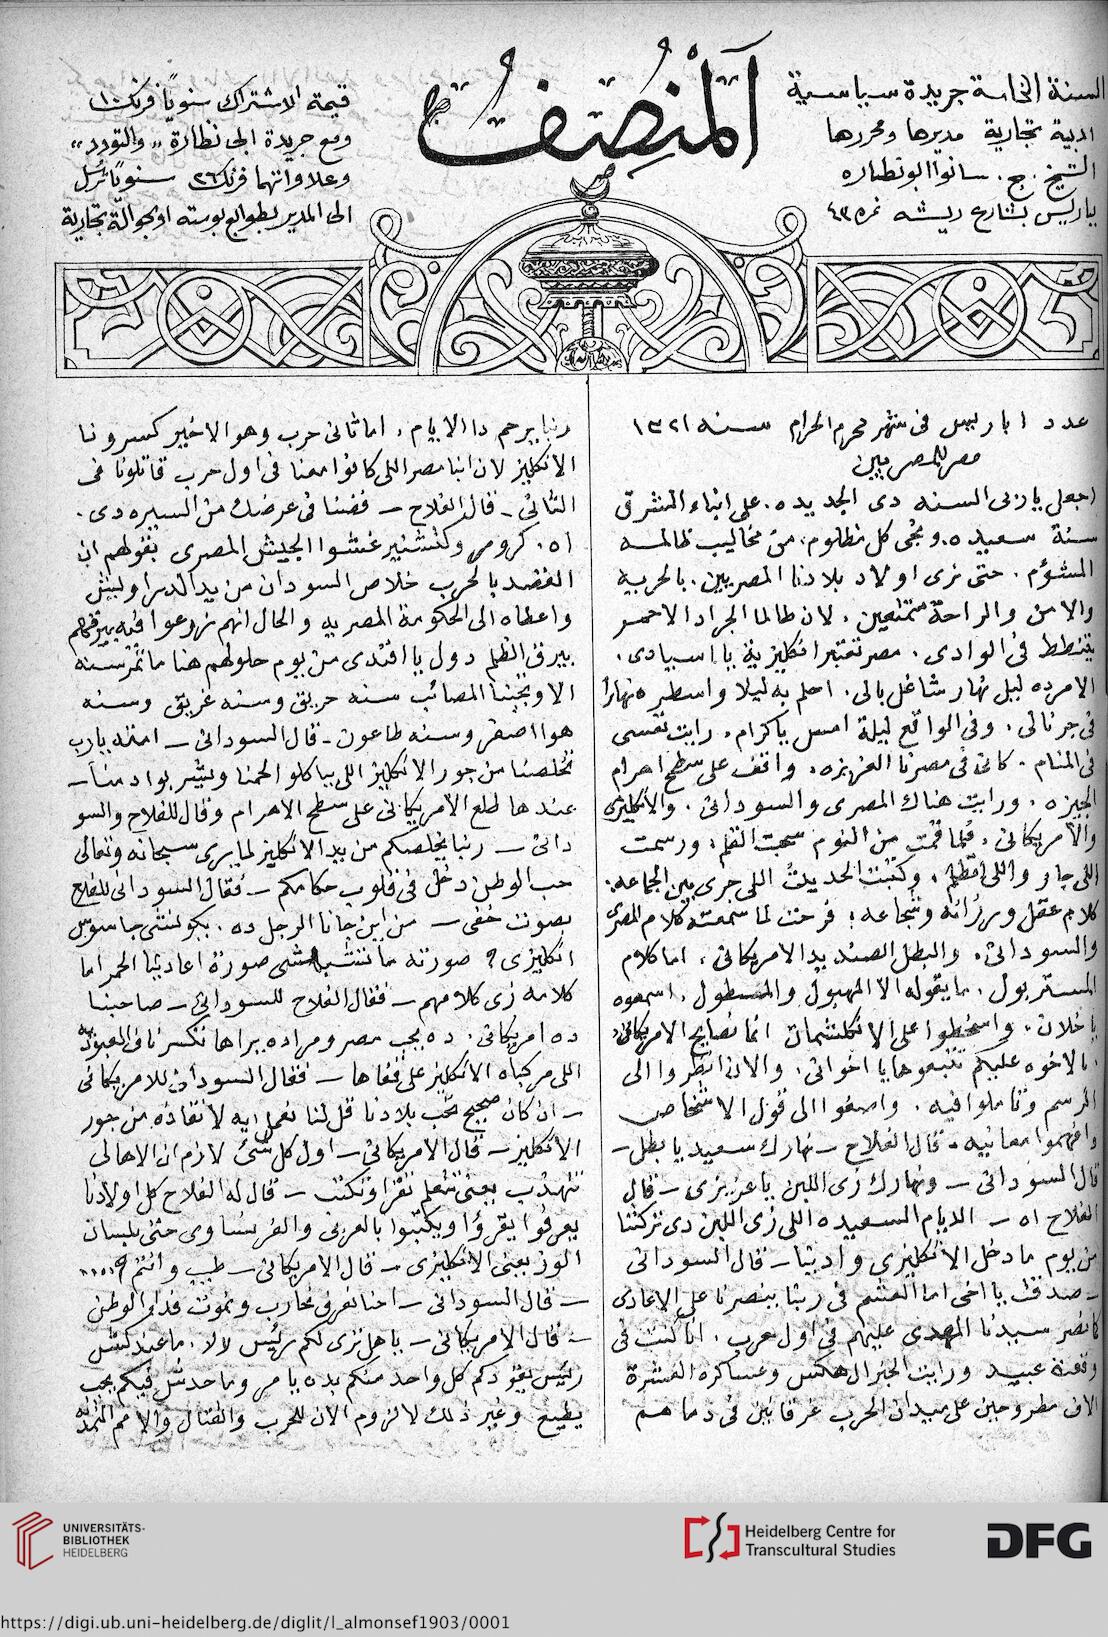 السنة الخامسة جريدة سياسية
ادبية تجارية مديرها ومحررها
الشيخ ج. سانوا ابو نظاره
باريس بشارع ريشه نمره ٤٣
اَلْمُنْصِفُ
قيمة الاشتراك سنويًا فرنك ١٠
ومع جريدة ابى نظارة „والتودد„
وعلاواتهما فرنك ٢٦ سنويًا تُرسل
الى المدير بطوابع بوسته او بحوالة تجارية
عدد ١ باريس فى شهر محرم الحرام سنه ١٣٢١
مصر للمصريين
اجعل يا ربى السنه دى الجديده. على ابناء الشرق
سنة سعيده. ونجى كل مظلوم. من مخاليب ظالمه
المشؤم. حتى نرى اولاد بلادنا المصريين. بالحرية
والامن والراحة متمتعين. لان طالما الجراد الاحمر
يتنطط فى الوادى. مصر تعتبر انكليزية يا اسيادى.
الامر ده ليل نهار شاغل بالى. احلم به ليلا واسطره نهارا
فى جرنالى. وفى الواقع ليلة امس ياكرام. رايت نفسى
فى المنام. كانى فى مصرنا العزيزه. واقف على سطح اهرام
الجيزه. ورايت هناك المصرى والسودانى. والانكليزى
والامريكانى. فلما قمت من النوم سحبت القلم. ورسمت
اللى جار واللى انظلم. وكتبت الحديث اللى جرى بين الجماعه.
كلام عقل ورزانه وشجاعه. فرحت لما سمعت كلام المصرى
والسودانى. والبطل الصنديد الامريكانى. اما كلام
المستر بول. ما يقوله الا المهبول والمسطول. اسمعوه
يا خلان. واسخطوا على الانكلشمان انما نصايح الامريكانى
بالاخوه عليكم تتبعوها يا اخوانى. والان انظروا الى
الرسم وتاملوا فيه. واصغوا الى قول الاشخاص
وافهموا معانيه. قال الفلاح – نهارك سعيد يا بطل –
قال السودانى – ونهارك زى اللبن يا عزيزى – قال
الفلاح اه – الايام السعيده اللى زى اللبن دى تركتنا
من يوم ما دخل الانكليزى وادينا – قال السودانى
– صدقت يا اخى اما العشم فى ربنا ينصرنا على الاعادى
كما نصر سيدنا المهدى عليهم فى اول حرب. انا كنت فى
وقعة عبيد ورايت الجنرال هكس وعساكره العشرة
الاف مطروحين على ميدان الحرب غرقانين فى دماهم
ربنا يرحم دا الايام. اما ثانى حرب وهو الاخير كسرونا
الانكليز لان ابنا مصر اللى كانوا معنا فى اول حرب قاتلونا فى
الثانى – قال الفلاح – فضنا فى عرضك من السيره دى.
اه. كرومر وكتشنير غشوا الجيش المصرى بقولهم ان
القصد بالحرب خلاص السودان من يد الدراويش
واعطاه الى الحكومة المصريه والحال انهم زرعوا فيه بيرقهم
بيرق الظلم دول يا افندى من يوم حلولهم هنا ما تمر سنه
الا وتجينا المصائب سنه حريق وسنه غريق وسنه
هوا اصفر وسنه طاعون – قال السودانى – امته يا رب
تخلصنا من جور الانكليز اللى بياكلو الحمنا ويشربوا دمنا –
عندها طلع الامريكانى على سطح الاهرام وقال للفلاح والسو
دانى – ربنا يخلصكم من يد الانكليز لما يرى سبحانه وتعالى
حب الوطن دخل فى قلوب حكامكم – فقال السودانى للفلاح
بصوت خفى – من اين جانا الرجل ده. يكونشى جاسوس
انكليزى؟ صورته ما تشبهشى صورة اعادينا الحمر اما
كلامه زى كلامهم – فقال الفلاح للسودانى – صاحبنا
ده امريكانى. ده يحب مصر ومراده يراها تكسر ناف العبوديه
اللى مركباه الانكليز على قفاها – فقال السودانى للامريكانى
– ان كان صحيح تحب بلادنا قل لنا نعمل ايه لانقاذه من جور
الانكليز – قال الامريكانى – اول كل شئ لازم ان الاهالى
تتهذب يعنى تتعلم تقرا وتكتب – قال له الفلاح كل اولادنا
يعرفوا يقرؤا ويكتبوا بالعربى والفرنساوى حتى بلسان
الوز يعنى الانكليزى – قال الامريكانى – طيب وانتم؟....
– قال السودانى – احنا نعرف نحارب ونموت فدا الوطن
– قال الامريكانى – يا هل ترى لكم رئيس لالا. ما عندكش
رئيس يقودكم كل واحد منكم بده يامر وما حدش فيكم يحب
يطيع وغير ذلك لا لزوم الان للحرب والقتال والامم المتمدنه
UNIVERSITÄTS-
BIBLIOTHEK
HEIDELBERG
Heidelberg Centre for
Transcultural Studies
DFG
https://digi.ub.uni-heidelberg.de/diglit/l_almonsef1903/0001